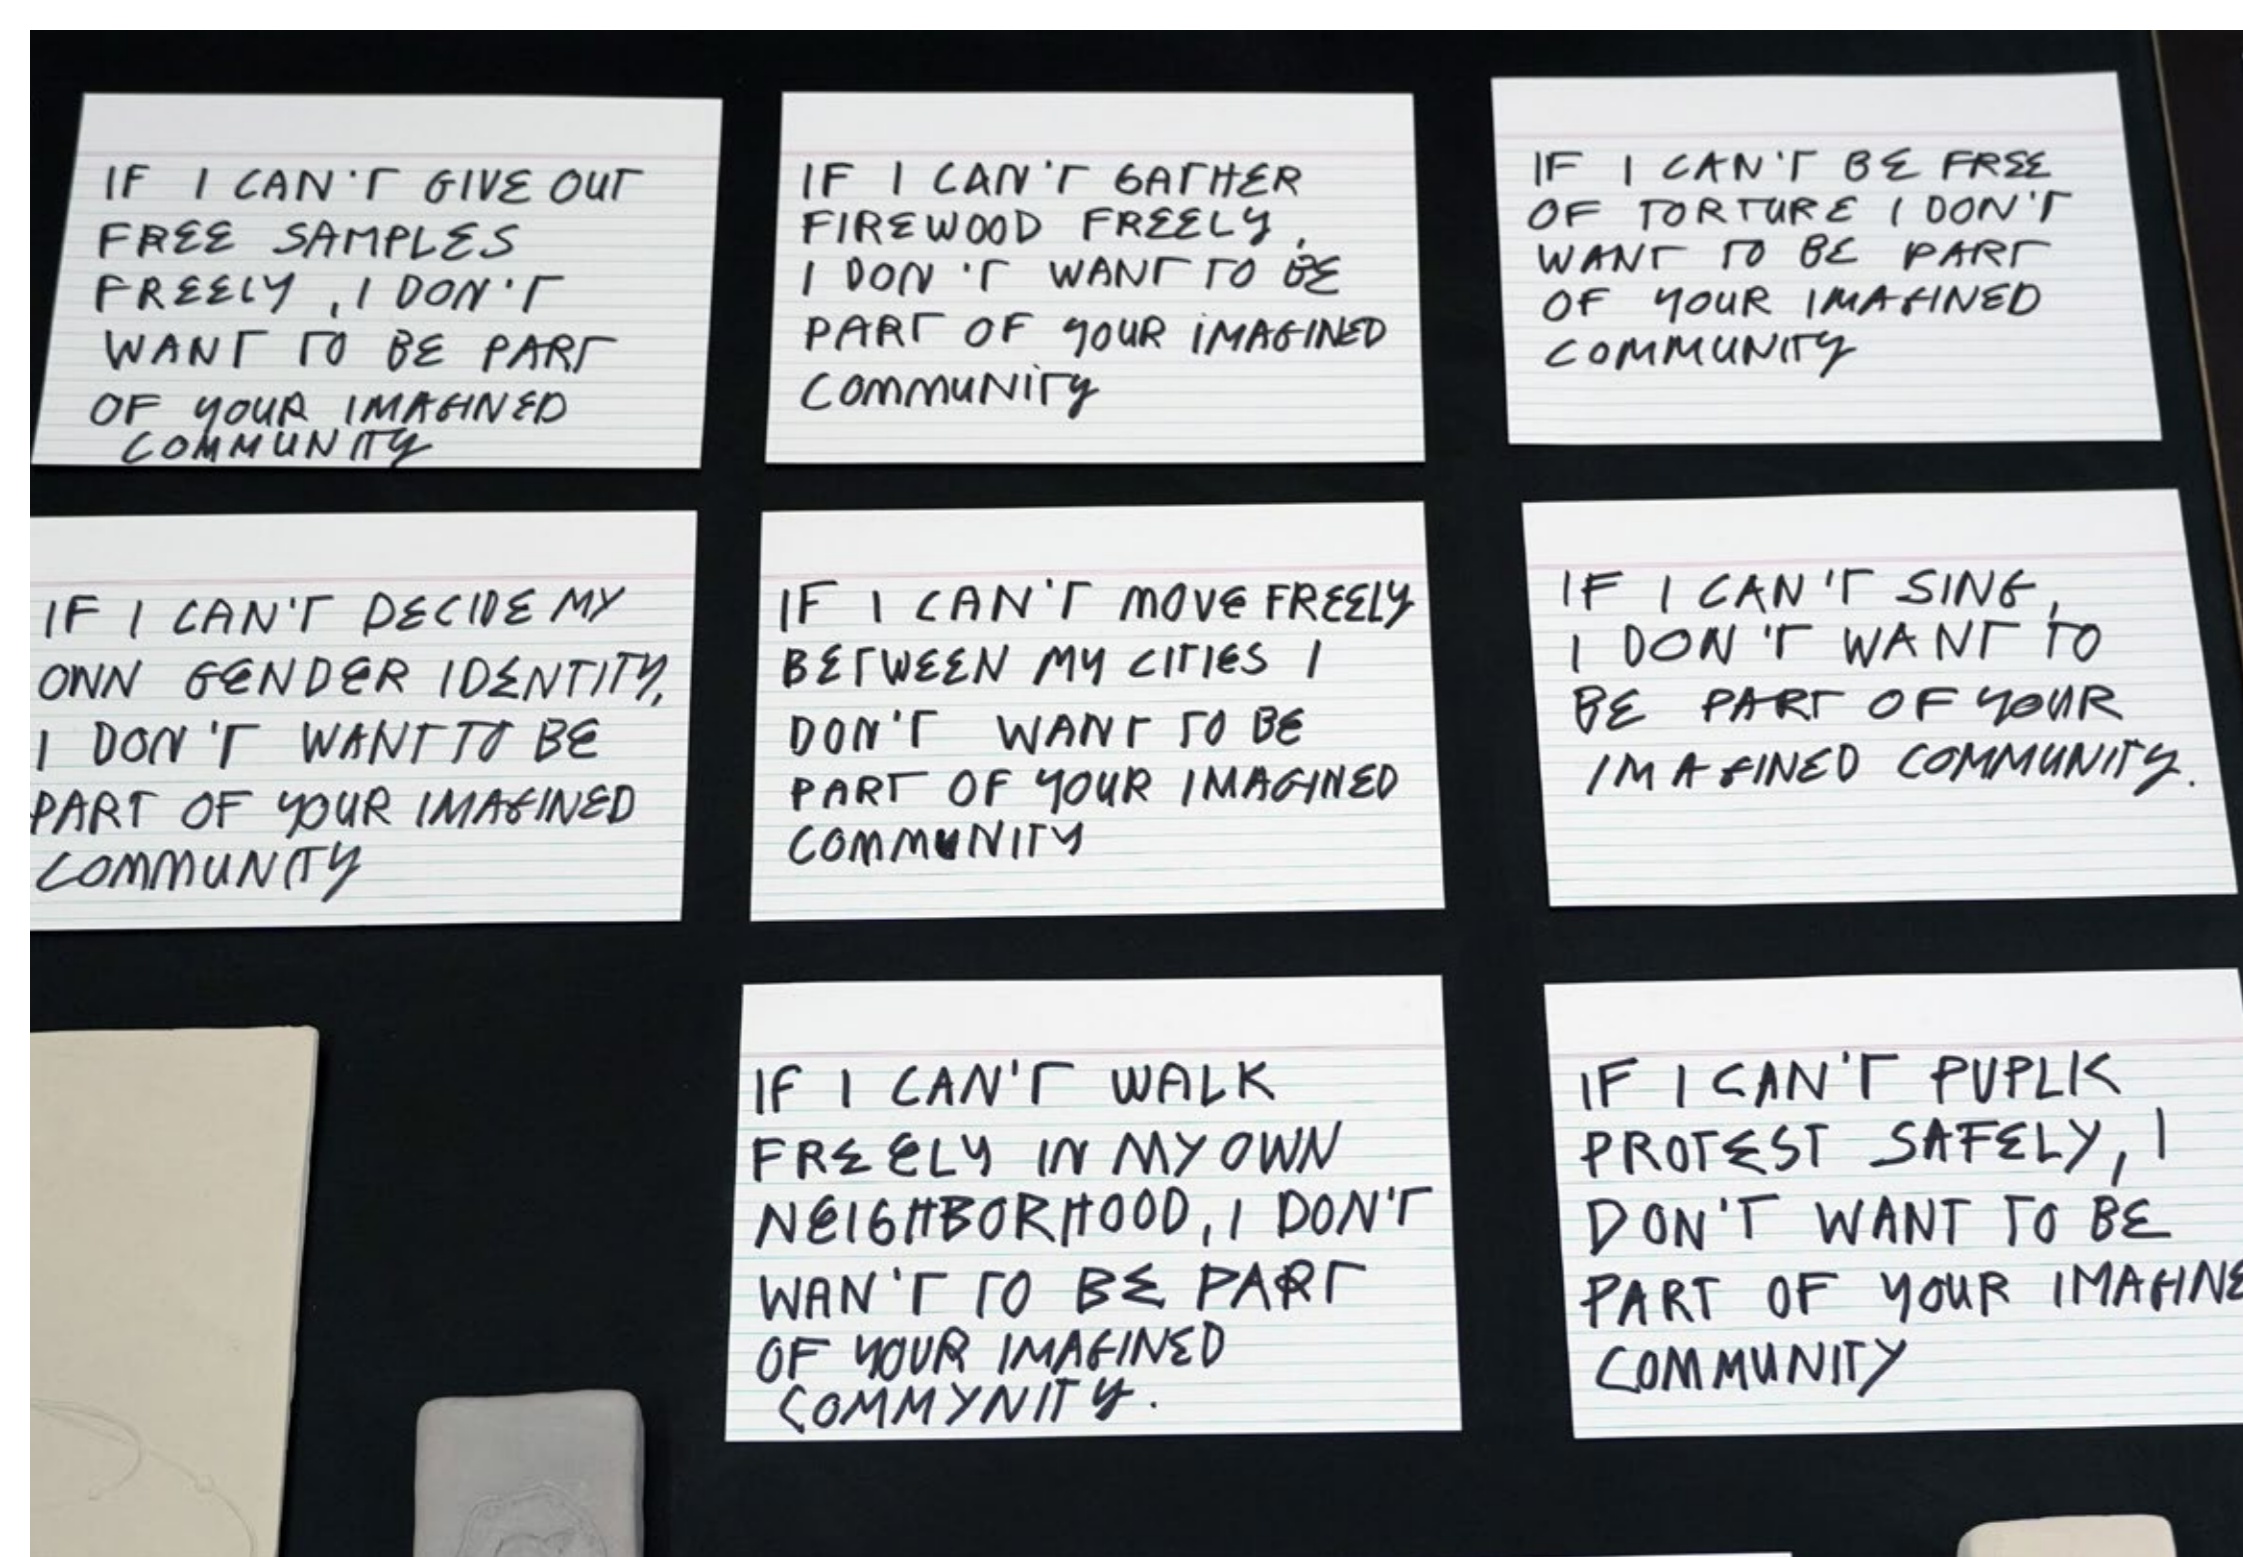 IF I CAN'T GIVE OUT
FREE SAMPLES
FREELY, I DON'T
WANT TO BE PART
OF YOUR IMAGINED
COMMUNITY
IF I CAN'T GATHER
FIREWOOD FREELY,
I DON'T WANT TO BE
PART OF YOUR IMAGINED
COMMUNITY
IF I CAN'T BE FREE
OF TORTURE I DON'T
WANT TO BE PART
OF YOUR IMAGINED
COMMUNITY
IF I CAN'T DECIDE MY
OWN GENDER IDENTITY,
I DON'T WANT TO BE
PART OF YOUR IMAGINED
COMMUNITY
IF I CAN'T MOVE FREELY
BETWEEN MY CITIES I
DON'T WANT TO BE
PART OF YOUR IMAGINED
COMMUNITY
IF I CAN'T SING,
I DON'T WANT TO
BE PART OF YOUR
IMAGINED COMMUNITY.
IF I CAN'T WALK
FREELY IN MY OWN
NEIGHBORHOOD, I DON'T
WAN'T TO BE PART
OF YOUR IMAGINED
COMMYNITY.
IF I CAN'T PUPLIK
PROTEST SAFELY, I
DON'T WANT TO BE
PART OF YOUR IMAGINE
COMMUNITY